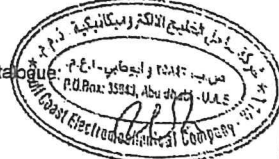 شركة ساحل الخليج الالكتروميكانيكية ذ.م.م
talogue:
ابوظبي - ا.ع.م
P.O.Box: 35841, Abu Dhabi - U.A.E
Gulf Coast Electromechanical Company